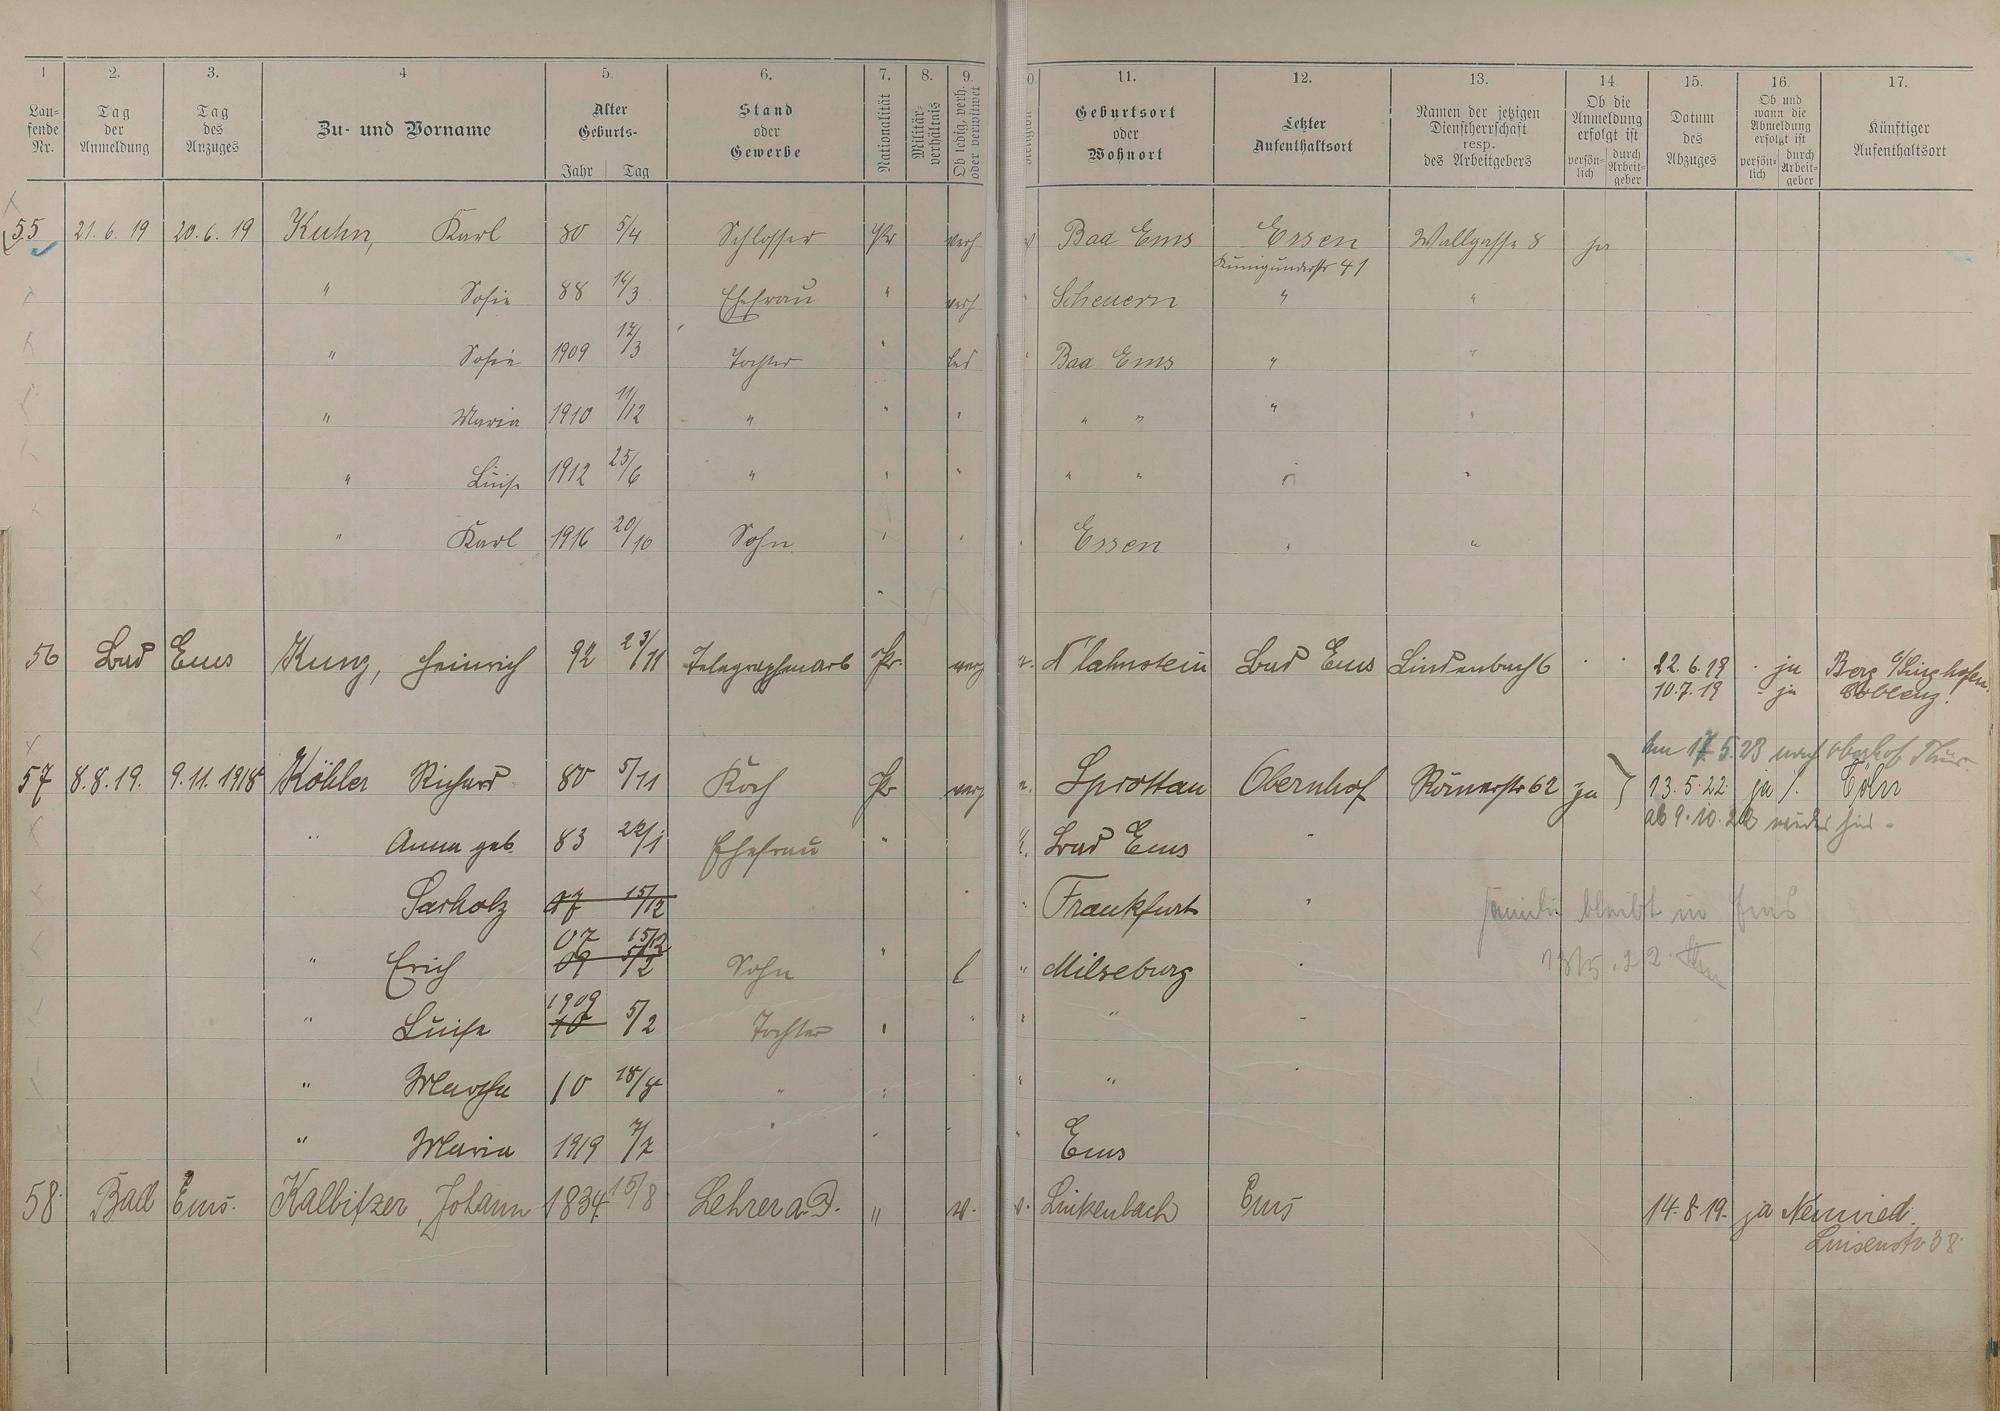 1 2. 3. 4 5. 6. 7. 8. 9. 0. 11. 12. 13. 14 15. 16. 17.
Lau-
fende
Nr.
Tag
der
Anmeldung
Tag
des
Anzuges
Zu- und Vorname
Alter
Geburts-
Jahr Tag
Stand
oder
Gewerbe
Nationalität
Militär-
verhältnis
Ob ledig, verh.
oder verwitwet
Religion
Geburtsort
oder
Wohnort
Letzter
Aufenthaltsort
Namen der jetzigen
Dienstherrschaft
resp.
des Arbeitgebers
Ob die
Anmeldung
erfolgt ist
persön-
lich
durch
Arbeit-
geber
Datum
des
Abzuges
Ob und
wann die
Abmeldung
erfolgt ist
persön-
lich
durch
Arbeit-
geber
Künftiger
Aufenthaltsort
55 21. 6. 19 20. 6. 19 Kuhn, Karl 80 5/4 Schlosser Pr verh Bad Ems Essen Wallgasse 8 ja
Kunigundastr 41
" Sofie 88 14/3 Ehefrau " verh Scheuern " "
" Sofie 1909 17/3 Tochter " led Bad Ems " "
" Maria 1910 11/12 " " " " " " "
" Luise 1912 25/6 " " " " " " "
" Karl 1916 20/10 Sohn " " Essen " "
56 Bad Ems Kunz, Heinrich 92 23/11 Telegraphenarb Pr. verh N'lahnstein Bad Ems Lindenbach 6 22. 6. 19 ja Berg b/Singhofen
10. 7. 19 ja Coblenz.
am 17.5.23 nach Oberhof Thür.
57 8. 8. 19. 9. 11. 1918 Köhler Richard 80 5/11 Koch Pr verh Sprottau Obernhof Römerstr 62 ja 13. 5. 22 ja Cöln
ab 9. 10. 22 wieder hier.
Anna geb. 83 22/1 Ehefrau " Bad Ems
Sarholz 07 15/12 Frankfurt "
Familie bleibt in Ems
07 15/12
" Erich 09 5/2 Sohn " l " Milseburg
13/5. 22.
1909
" Luise 10 5/2 Tochter " " " "
" Martha 10 18/8 " " "
" Maria 1919 7/7 " Ems
58 Bad Ems. Kalbitzer, Johann 1834 15/8 Lehrer a. D. " w. v. Linkenbach Ems 14. 8. 19. ja Neuwied.
Luisenstr 38.